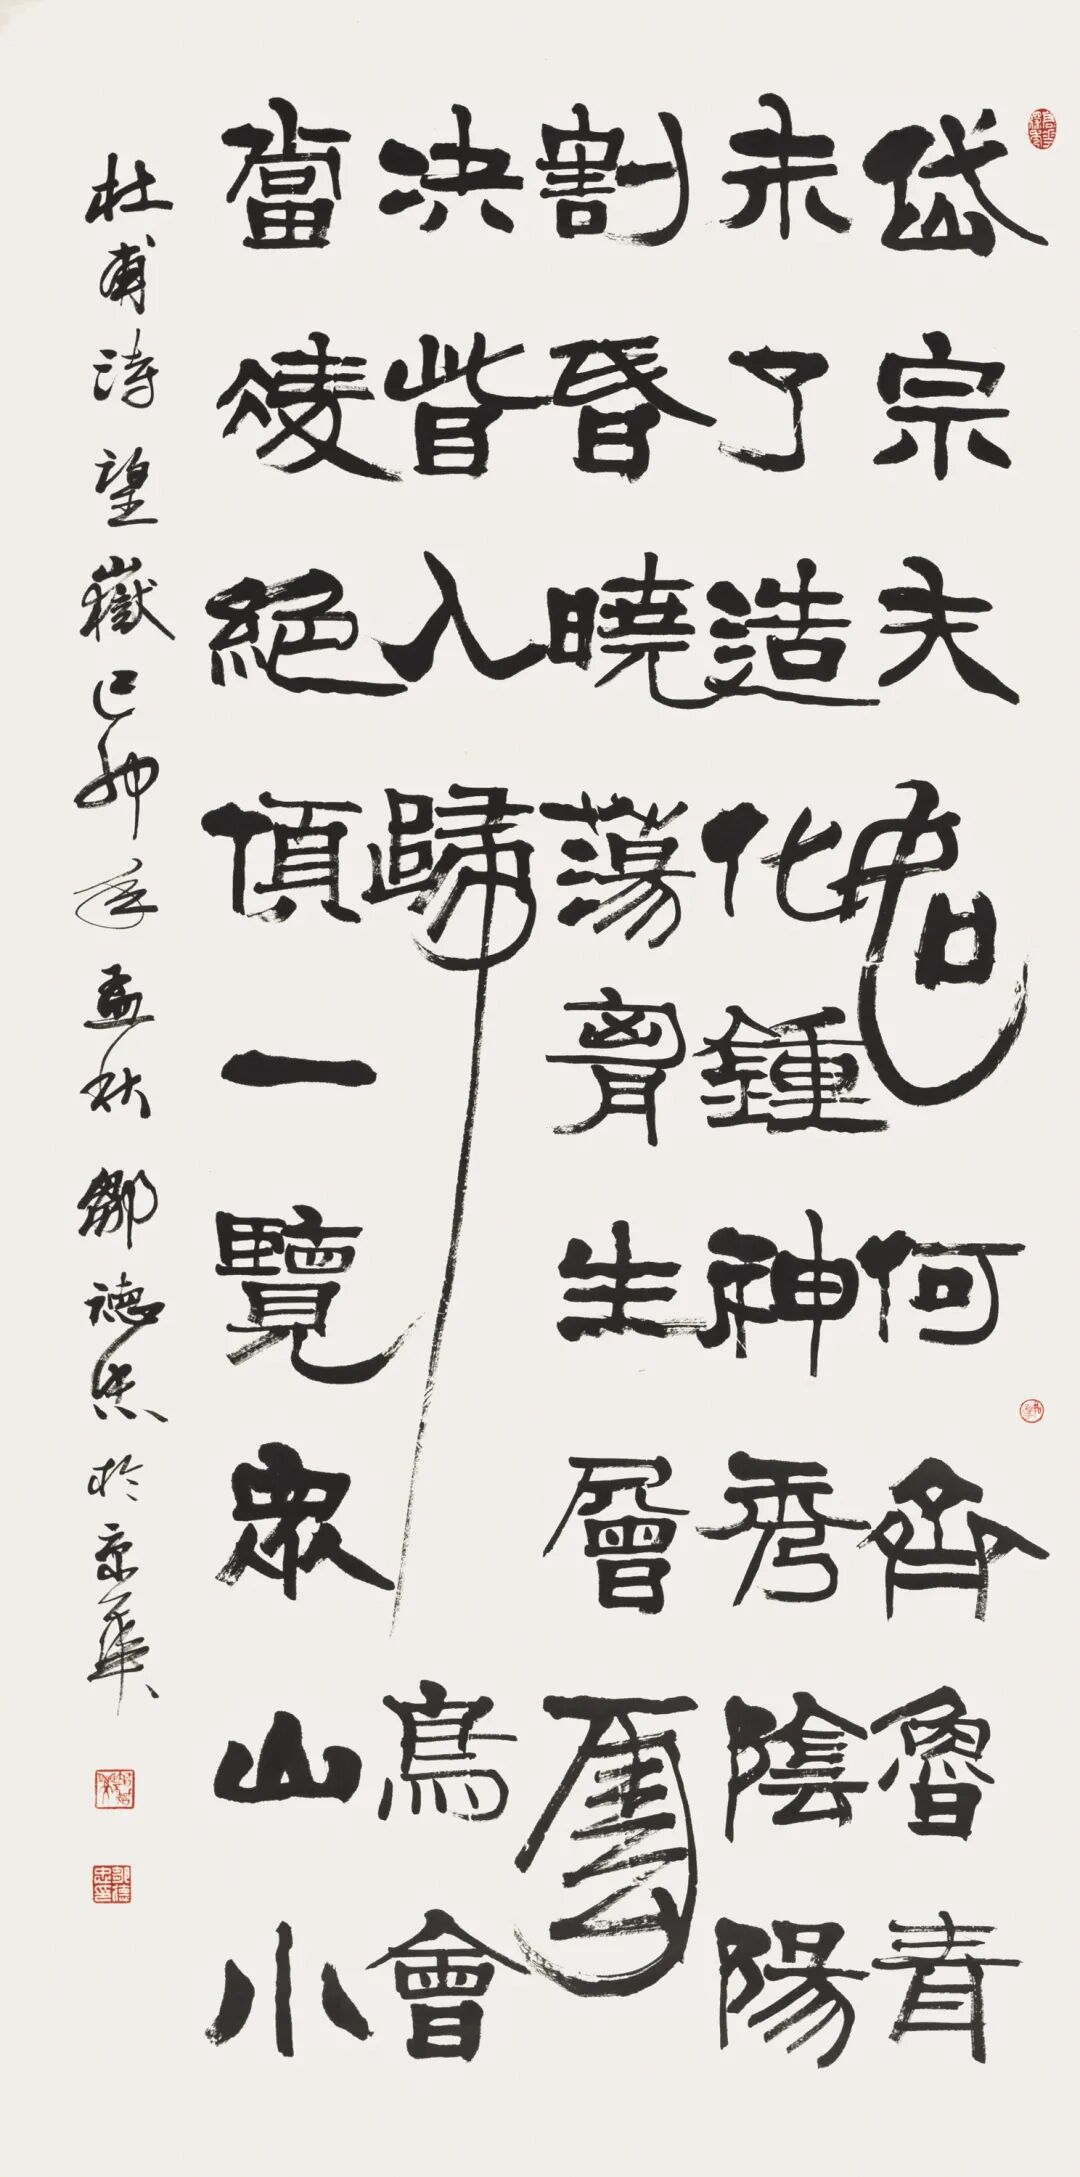 岱宗夫如何齊魯青
未了造化鍾神秀陰陽
割昏曉蕩胷生層雲
決眥入歸鳥會
當凌絕頂一覽衆山小
杜甫詩望嶽己卯年孟秋鄒德忠於京華
鄒德忠印